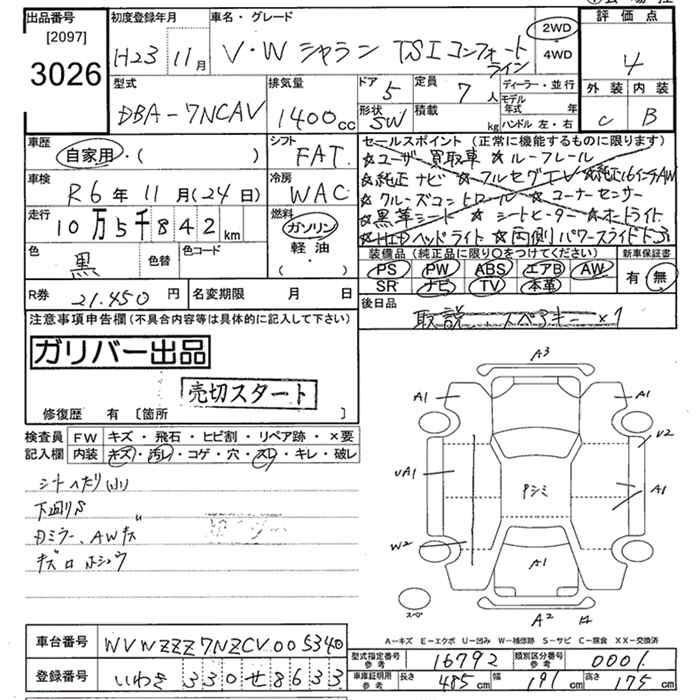 出品番号
[2097]
3026
初度登録年月
H23 11月
車名・グレード
V・W シャラン TSI コンフォートライン
2WD
4WD
評価点
4
外装 内装
C B
型式
DBA-7NCAV
排気量
1400cc
ドア 5
形状 SW
定員 7人
積載 kg
ディーラー・並行
モデル年式 年
ハンドル 左・右
車歴
自家用・( )
シフト
FAT
車検
R6年11月(24日)
冷房
WAC
走行
10万5千842km
燃料
ガソリン
軽油
( ・ )
色
黒
色替
色コード
R券
21.450円
名変期限 月 日
セールスポイント (正常に機能するものに限ります)
☆ユーザー買取車 ☆ルーフレール
☆純正ナビ ☆フルセグTV ☆純正16インチAW
☆クルーズコントロール ☆コーナーセンサー
☆黒革シート ☆シートヒーター ☆オートライト
☆HIDヘッドライト ☆両側パワースライドドア
装備品 (純正品に限り○をつけてください)
新車保証書
PS PW ABS エアB AW
SR ナビ TV 本革
有・無
後日品
取説 スペアキー×1
注意事項申告欄(不具合内容等は具体的に記入して下さい)
ガリバー出品
売切スタート
修復歴 有 [箇所 ]
検査員記入欄
FW キズ・飛石・ヒビ割・リペア跡・×要
内装 キズ・汚レ・コゲ・穴・スレ・キレ・破レ
シートへたり(小)
下廻りS
Dミラー、AWキズ
キズロホシュウ
A3
A1
A1
V2
UA1
Pシミ
A1
W2
A1
スペ
A2
A-キズ E-エクボ U-凹み W-補修跡 S-サビ C-腐食 XX-交換済
車台番号
WVWZZZ7NZCV005340
登録番号
いわき330せ8633
型式指定番号 参考
16792
類別区分番号 参考
0001
車庫証明用 参考
長さ 485cm 幅 191cm 高さ 175cm